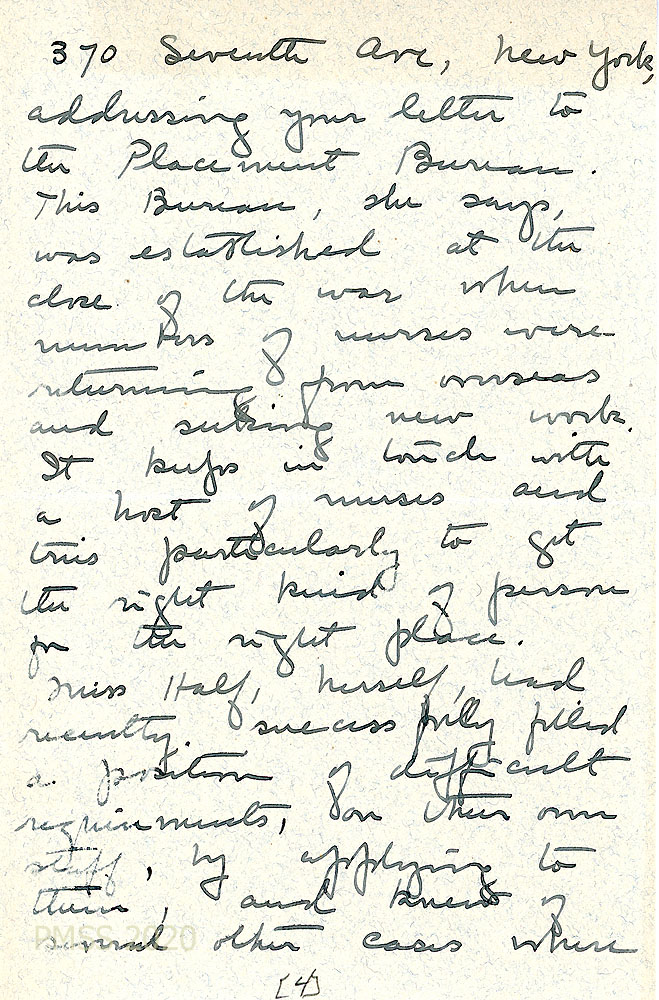 370 Seventh Ave, New York,
addressing your letter to
the Placement Bureau.
This Bureau, she says,
was established at the
close of the war when
numbers of nurses were
returning from overseas
and seeking new work.
It keeps in touch with
a host of nurses and
tries particularly to get
the right kind of person
for the right place.
Miss Half, herself, had
recently successfully filled
a position of difficult
requirements, on their own
staff, by applying to
them, and knew of
several other cases where
[4]
PMSS 2020